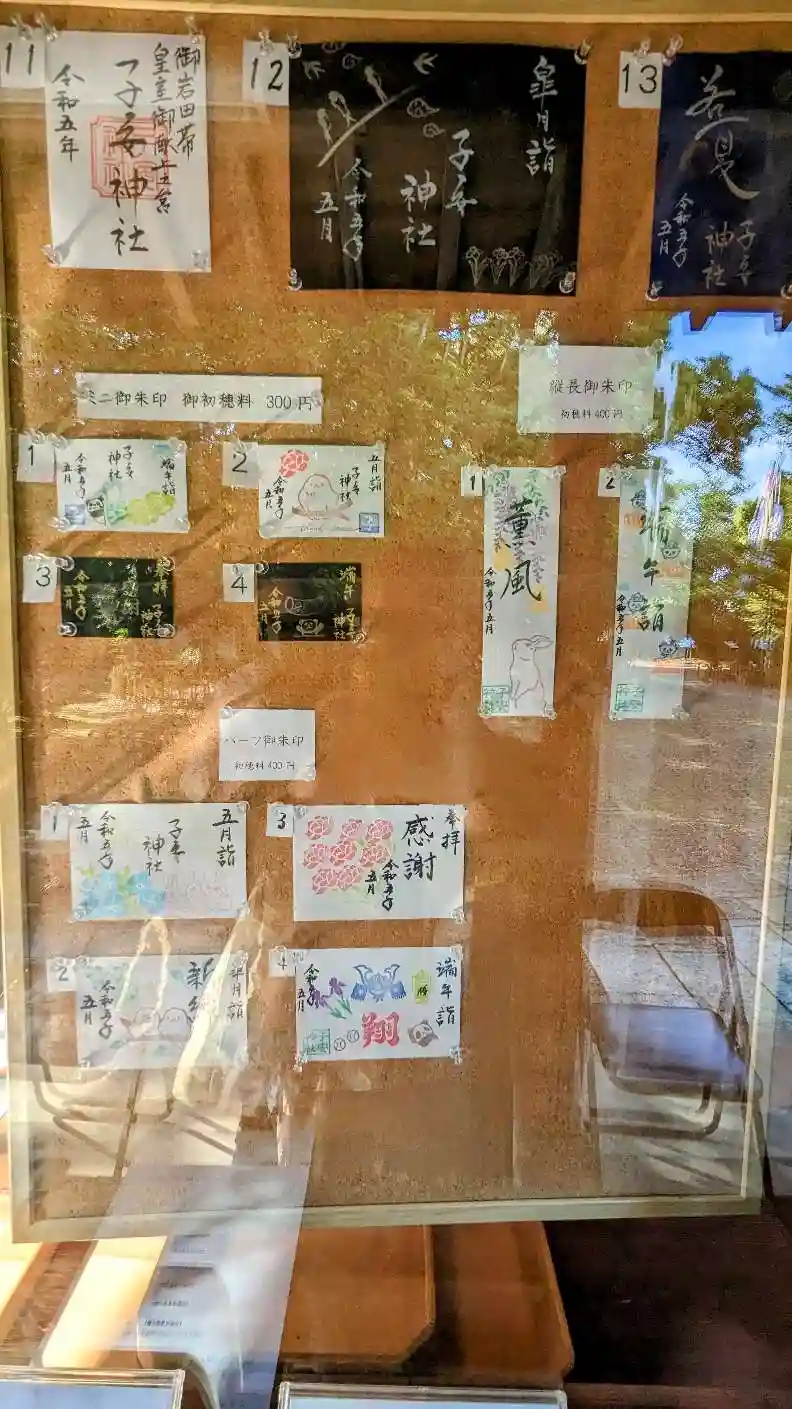 11
御岩田帯
皇室御献上宮
子安神社
令和五年
12
皐月詣
子安
神社
令和五年
五月
13
若夏
子安
神社
令和五年
五月
ミニ御朱印 御初穂料 300円
縦長御朱印
初穂料400円
1
端午詣
子安
神社
令和五年
五月
2
五月詣
子安
神社
令和五年
五月
3
奉拝
子安
神社
令和五年
五月
4
端午
子安
神社
令和五年
五月
1
薫風
令和五年五月
2
端午詣
令和五年五月
ハーフ御朱印
初穂料400円
1
五月詣
子安
神社
令和五年
五月
3
奉拝
感謝
令和五年
五月
2
皐月詣
新緑
令和五年
五月
4
端午詣
勝
翔
令和五年
五月